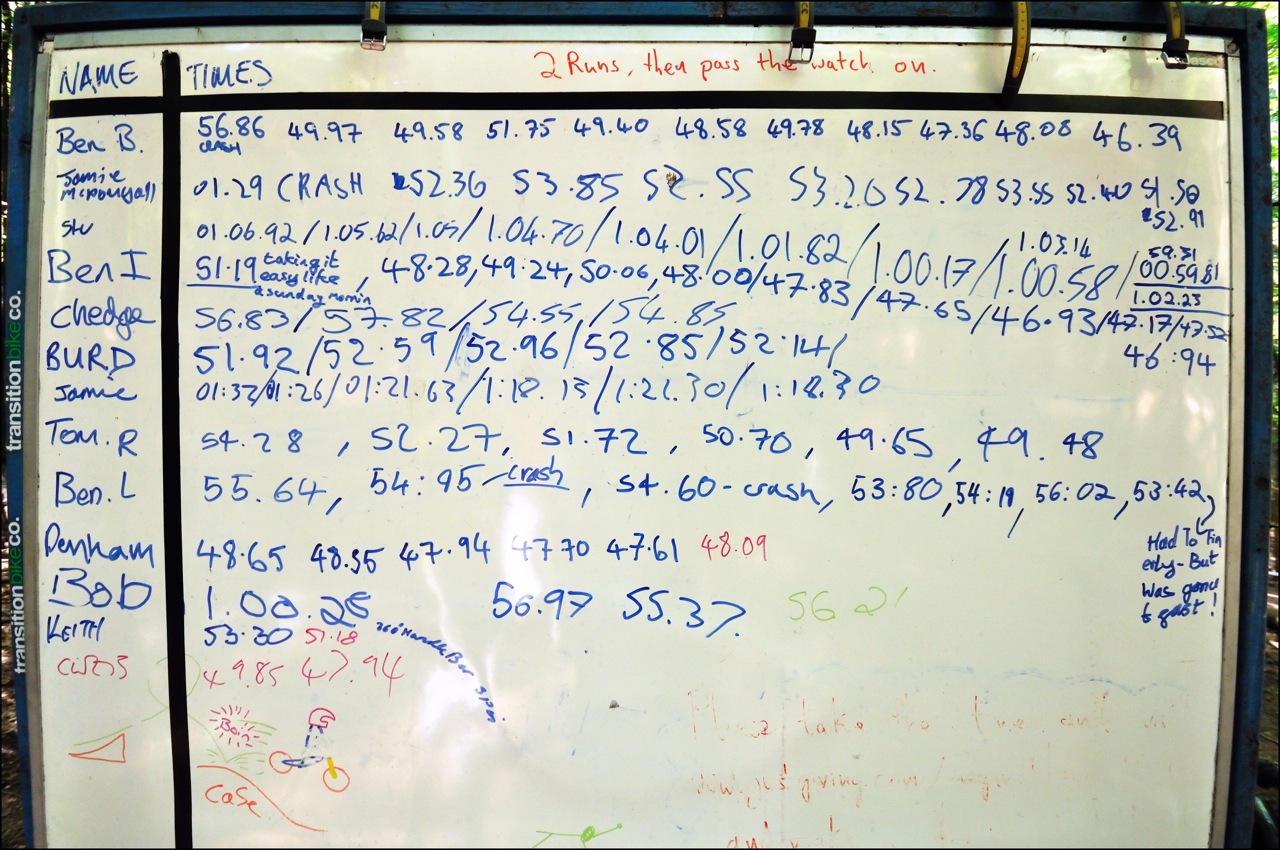 NAME TIMES 2 Runs, then pass the watch on.
Ben B. 56.86 49.97 49.58 51.75 49.40 48.58 49.78 48.15 47.36 48.08 46.39
CRASH
Jamie 01.29 CRASH 52.36 53.85 52.55 53.20 52.78 53.55 52.40 51.50
McDougall 52.91
Stu 01.06.92/1.05.62/1.05/1.04.70/1.04.01/1.01.82/1.00.17/1.00.58/
1.03.14 59.31
00.59.81
1.02.23
Ben I 51.19 taking it easy like a sunday mornin, 48.28, 49.24, 50.06, 48.00/47.83/47.65/46.93/47.17/47.52
46:94
Chedge 56.83/57.82/54.55/54.85
BURD 51.92/52.59/52.96/52.85/52.14/
Jamie 01:32/01:26/01:21.63/1:18.15/1:21.30/1:18.30
Tom.R 54.28, 52.27, 51.72, 50.70, 49.65, 49.48
Ben.L 55.64, 54:95 - crash, 54.60 - crash, 53:80, 54:19, 56:02, 53:42,
Had To Fin
erly - But
was gonna
Denham 48.65 48.35 47.94 47.70 47.61 48.09
Bob 1.00.28 56.97 55.37 56 2
KEITH 53.30 51.18
360 Handle Bar spin
49.85 47.94
Boin
Case
take the time and
giving
transitionbikeco.
transitionbikeco.